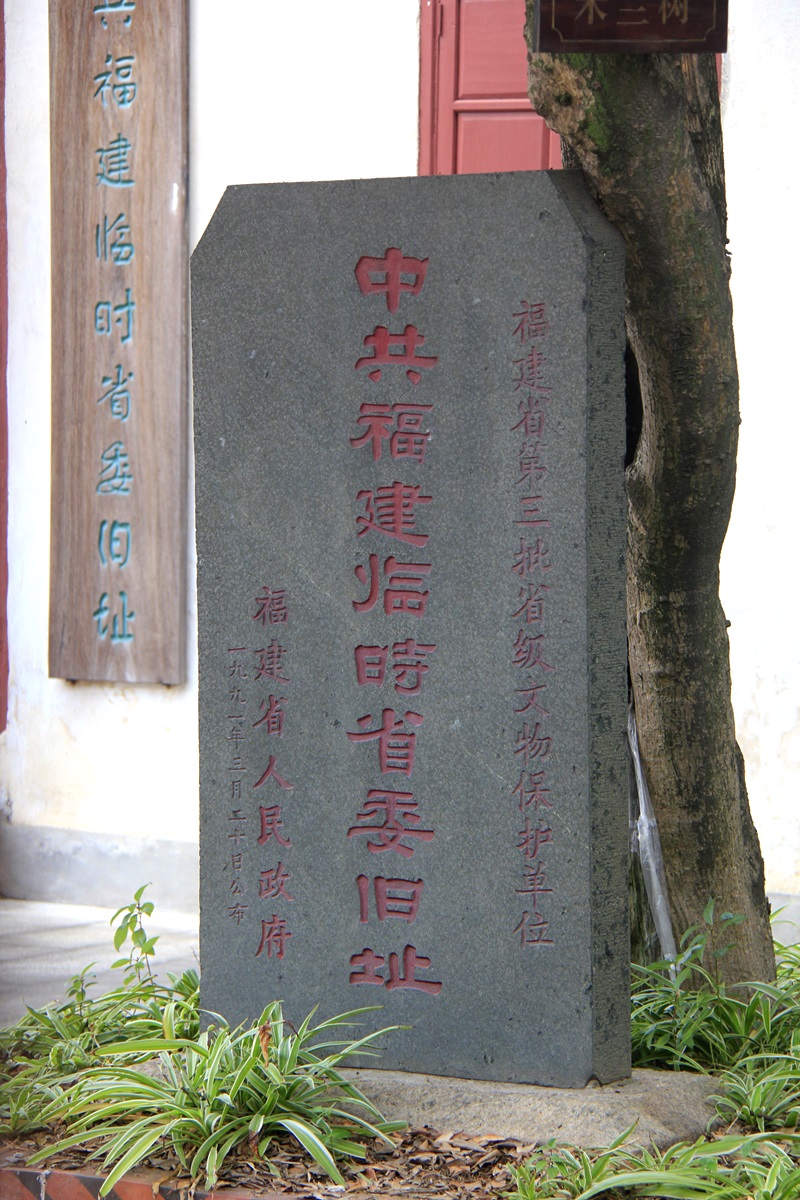 福建省第三批省级文物保护单位
中共福建临時省委旧址
福建省人民政府
一九九一年三月二十日公布
共福建临时省委旧址